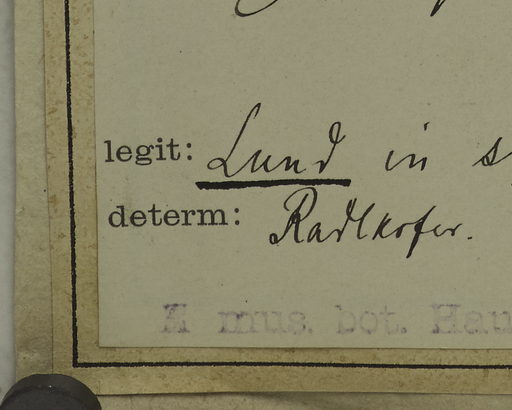 legit: Lund in
determ: Radlkofer.
mus. bot. Hau